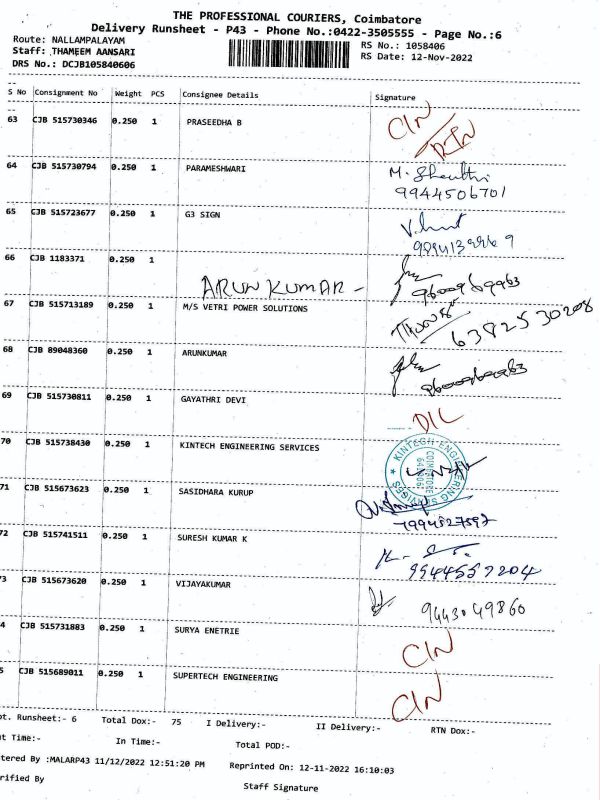 THE PROFESSIONAL COURIERS, Coimbatore
Delivery Runsheet - P43 - Phone No.:0422-3505555 - Page No.:6
Route: NALLAMPALAYAM
RS No.: 1058406
Staff: THAMEEM AANSARI
RS Date: 12-Nov-2022
DRS No.: DCJB105840606
S No Consignment No Weight PCS Consignee Details Signature
63 CJB 515730346 0.250 1 PRASEEDHA B CIN
RTN
64 CJB 515730794 0.250 1 PARAMESHWARI M.
9944506701
65 CJB 515723677 0.250 1 G3 SIGN
66 CJB 1183371 0.250 1
ARUN KUMAR - 9600969963
67 CJB 515713189 0.250 1 M/S VETRI POWER SOLUTIONS
6382530208
68 CJB 89048360 0.250 1 ARUNKUMAR
69 CJB 515730811 0.250 1 GAYATHRI DEVI D/L
70 CJB 515738430 0.250 1 KINTECH ENGINEERING SERVICES
KINTECH ENGINEERING SERVICES
COIMBATORE
71 CJB 515673623 0.250 1 SASIDHARA KURUP
7994527597
72 CJB 515741511 0.250 1 SURESH KUMAR K
9944557204
73 CJB 515673620 0.250 1 VIJAYAKUMAR
9443049860
4 CJB 515731883 0.250 1 SURYA ENETRIE CIN
5 CJB 515689011 0.250 1 SUPERTECH ENGINEERING CIN
ot. Runsheet:- 6 Total Dox:- 75 I Delivery:- II Delivery:- RTN Dox:-
ut Time:- In Time:- Total POD:-
tered By :MALARP43 11/12/2022 12:51:20 PM Reprinted On: 12-11-2022 16:10:03
rified By Staff Signature